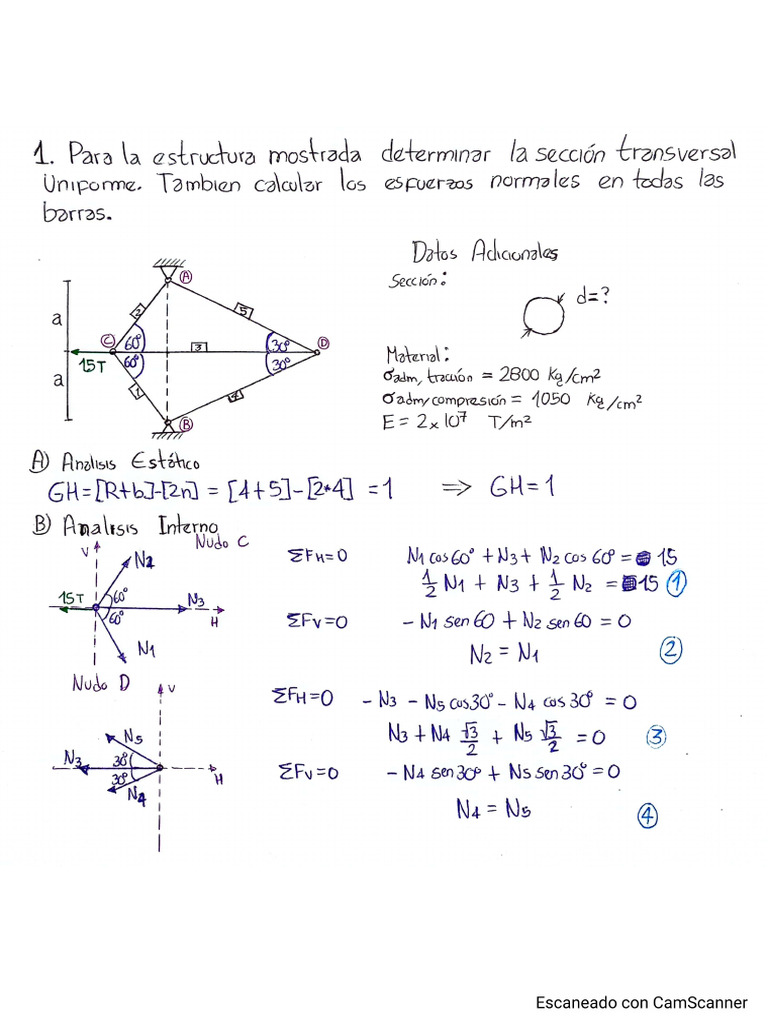 1. Para la estructura mostrada determinar la sección transversal
Uniforme. Tambien calcular los esfuerzos normales en todas las
barras.
Datos Adicionales
Sección:
d=?
Material:
σadm, tracción = 2800 Kg/cm²
σadm/compresión = 1050 Kg/cm²
E = 2x10⁷ T/m²
a
a
A
2
5
C
60°
3
30°
D
15T
60°
30°
1
4
B
A) Analisis Estático
GH=[R+b]-[2n] = [4+5]-[2*4] = 1 ⇒ GH=1
B) Analisis Interno
Nudo C
V
N2
15T
60°
N3
60°
H
N1
ΣFH=0 N1 cos60° + N3 + N2 cos 60° = 15
1/2 N1 + N3 + 1/2 N2 = 15 ①
ΣFV=0 - N1 sen 60 + N2 sen 60 = 0
N2 = N1 ②
Nudo D
V
N5
N3
30°
30°
H
N4
ΣFH=0 - N3 - N5 cos30° - N4 cos 30° = 0
N3 + N4 √3/2 + N5 √3/2 = 0 ③
ΣFV=0 - N4 sen 30° + N5 sen 30° = 0
N4 = N5 ④
Escaneado con CamScanner